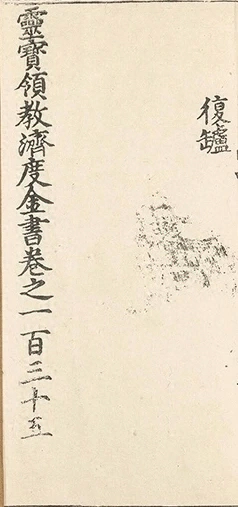 復鑪
靈寶領教濟度金書卷之一百三十五